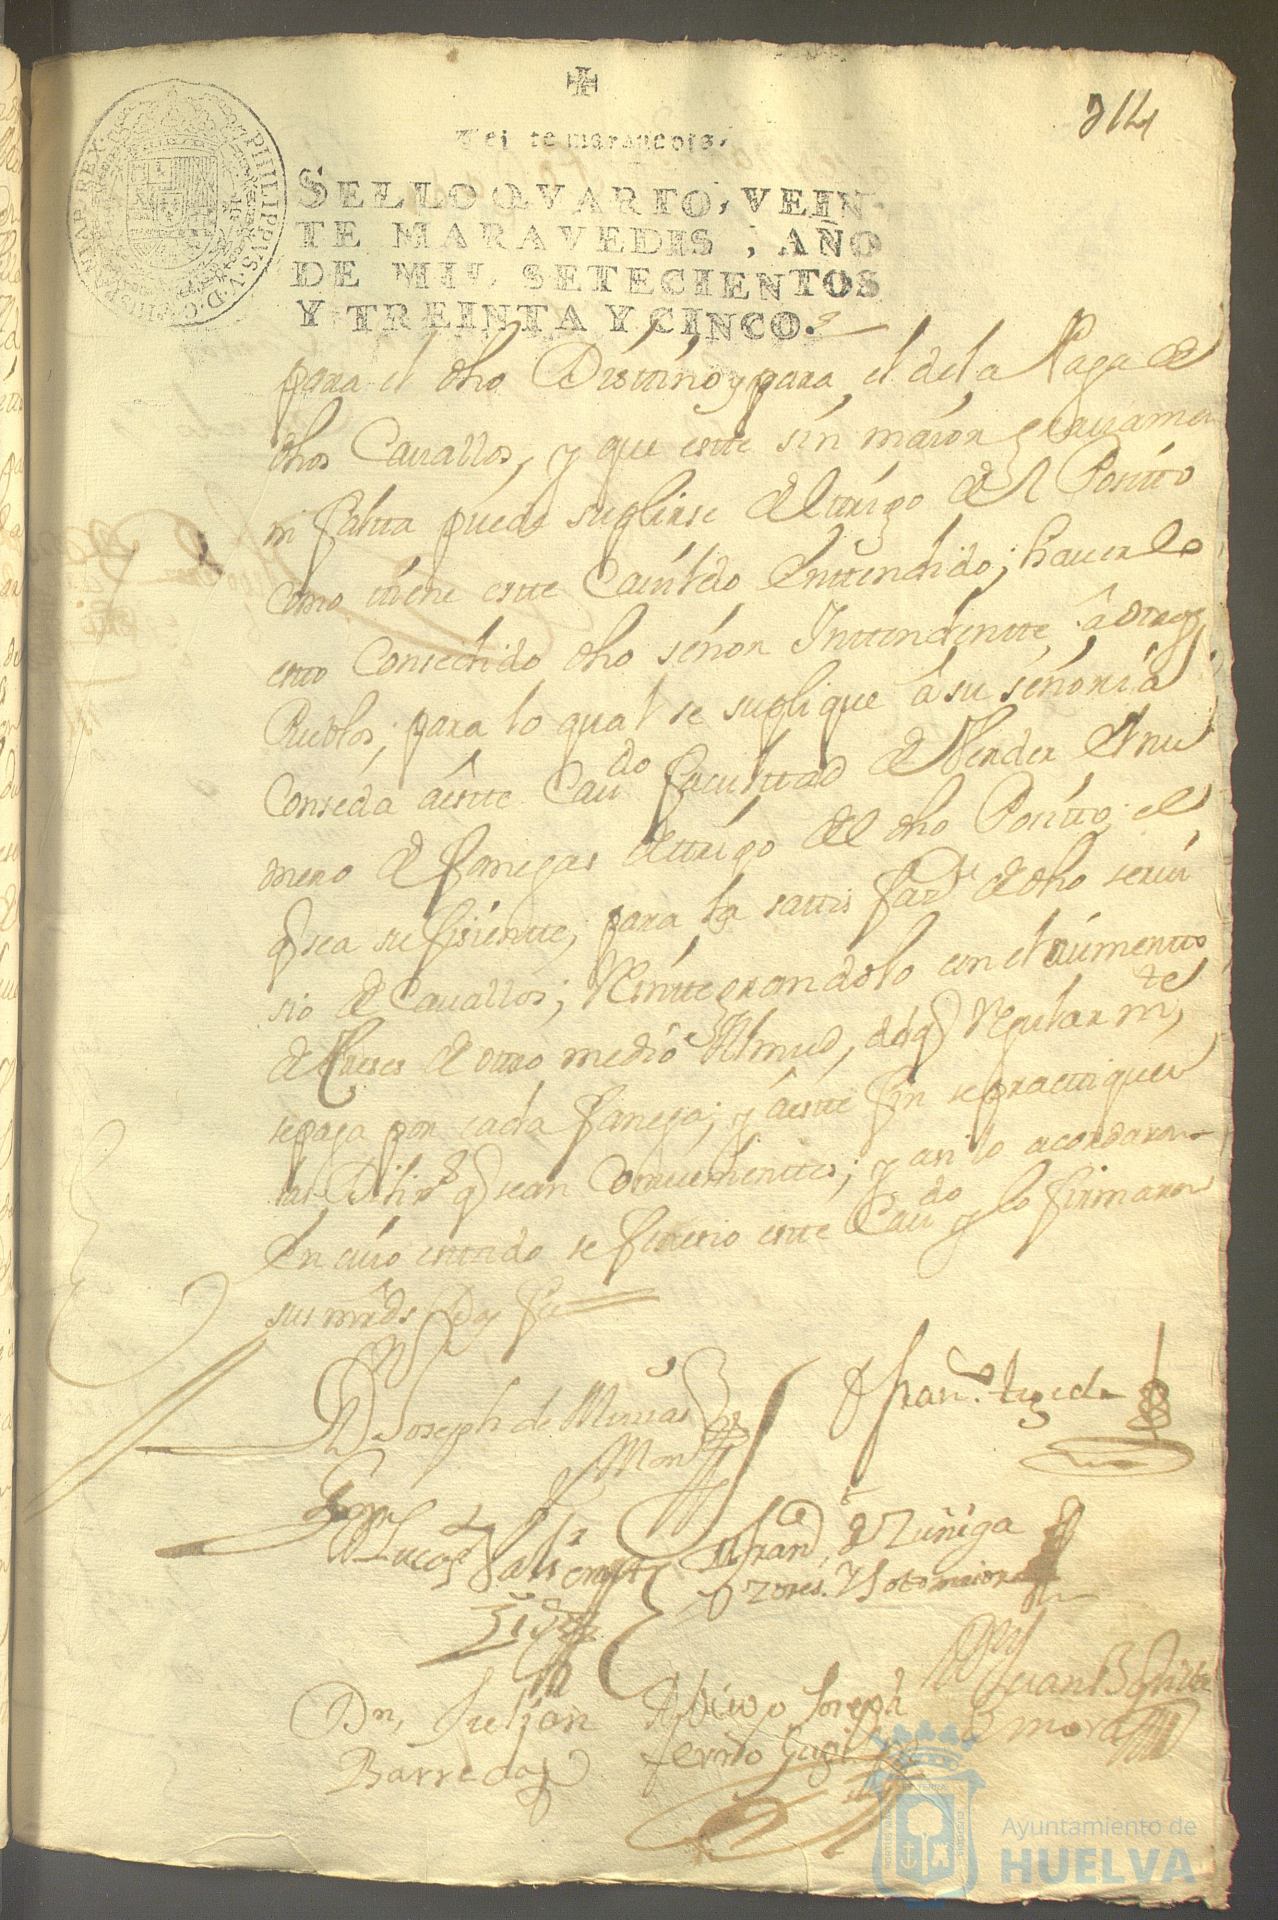 314
Veinte maravedis.
SELLO QVARTO, VEIN-
TE MARAVEDIS, AÑO
DE MIL SETECIENTOS
Y TREINTA Y CINCO.
PHILIPPVS. V. D. G. HISPANIAR. REX.
para el dho Distino y para el de la Paga de
dhos Cauallos, y que este sin maior grauamen
ni falta puede suplirse del trigo del Posito
como tiene este Cauildo Entendido; hauerlo
esto Consedido dho señor Intendente â otros
Pueblos; para lo qual se suplique â su señoria
Conseda â este Cau.do facultad de Vender el nu
mero de fanegas de trigo del dho Posito; el
q sea sufisiente, para la satisfaz.on de dho serui
sio de Cauallos; Reintegrandolo con el aumento
de Creses de otro medio Almud, del q Regularm.te
se paga por cada fanega; y â este fin se practiquen
las Dilix.s q sean Comvenientes; y asi lo acordaron
En cuio estado se fenesio este Cau.do y lo firmaron
sus mrds Doy fee
D Joseph de
Fran.co tegeda
Lucas
D Fran.co de Zuñiga
y Sotomaior
Dn. Julian
Barreda
Diego Joseph
Juan B
mora
Ayuntamiento de
HUELVA